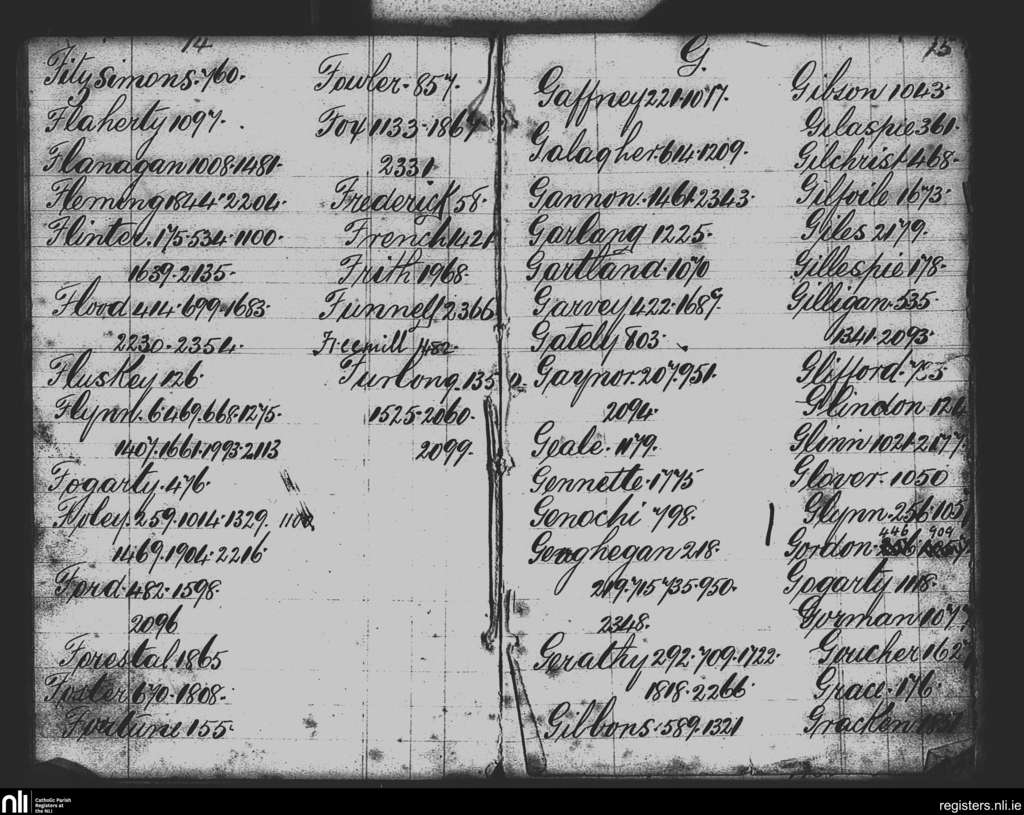 14
Fitzsimons. 760.
Flaherty 1097.
Flanagan 1008. 1481.
Fleming 1844. 2204.
Flinter. 175. 534. 1100.
1639. 2135.
Flood 414. 699. 1683.
2230. 2354.
Fluskey 126.
Flynn. 6. 469. 668. 1275.
1407. 1661. 1993. 2113
Fogarty. 476.
Foley. 259. 1014. 1329.
1469. 1904. 2216.
Ford. 482. 1598.
2096
Forestal. 1865
Foster 670. 1808.
Fortune 155.
Fowler. 857.
Fox 1133. 1867
2331
Frederick 58.
French 1421
Frith 1968.
Funnell 2366
Freemill 1482.
Furlong. 135
1525. 2060.
2099.
G.
15
Gaffney 221. 1017.
Galagher. 614. 1209.
Gannon. 1461. 2343.
Garlang 1225.
Gartland. 1070
Garvey 422. 1689.
Gately 803.
Gaynor. 207. 951.
2094.
Geale. 1179.
Gennette. 1775
Genochi 798.
Geoghegan 218.
219. 715 735. 950.
2348.
Gerathy 292. 709. 1722.
1818. 2266
Gibbons. 589. 1321
Gibson 1043.
Gilaspie 361.
Gilchrist 468.
Gilfoile 1673.
Giles 2179.
Gillespie 178.
Gilligan. 535.
1341. 2093.
Glifford.
Glindon
Glinn 1021. 2077
Glover. 1050
Glynn. 256. 1051
446 909
Gordon
Gogarty 1118.
Gorman 1077
Goucher 1627
Grace. 176.
Gracken
nli
Catholic Parish
Registers at
the NLI
registers.nli.ie